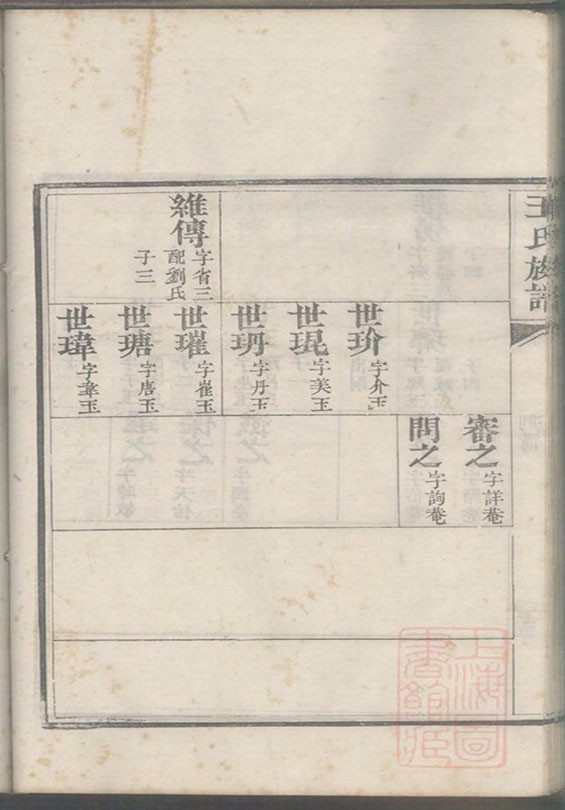 王氏族譜
審之 字詳菴
問之 字詢菴
世玠 字介玉
世琨 字美玉
世玬 字丹玉
維傳 字省三
配劉氏
子三
世璀 字崔玉
世瑭 字唐玉
世瑋 字韋玉
上海圖書館藏